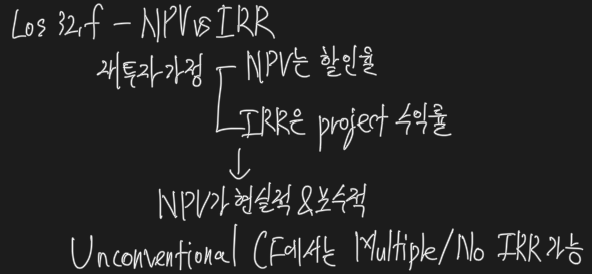 Los 32.f - NPV vs IRR
재투자가정 - NPV는 할인율
IRR은 project 수익률
NPV가 현실적 & 보수적
Unconventional CF에서는 Multiple/No IRR 가능